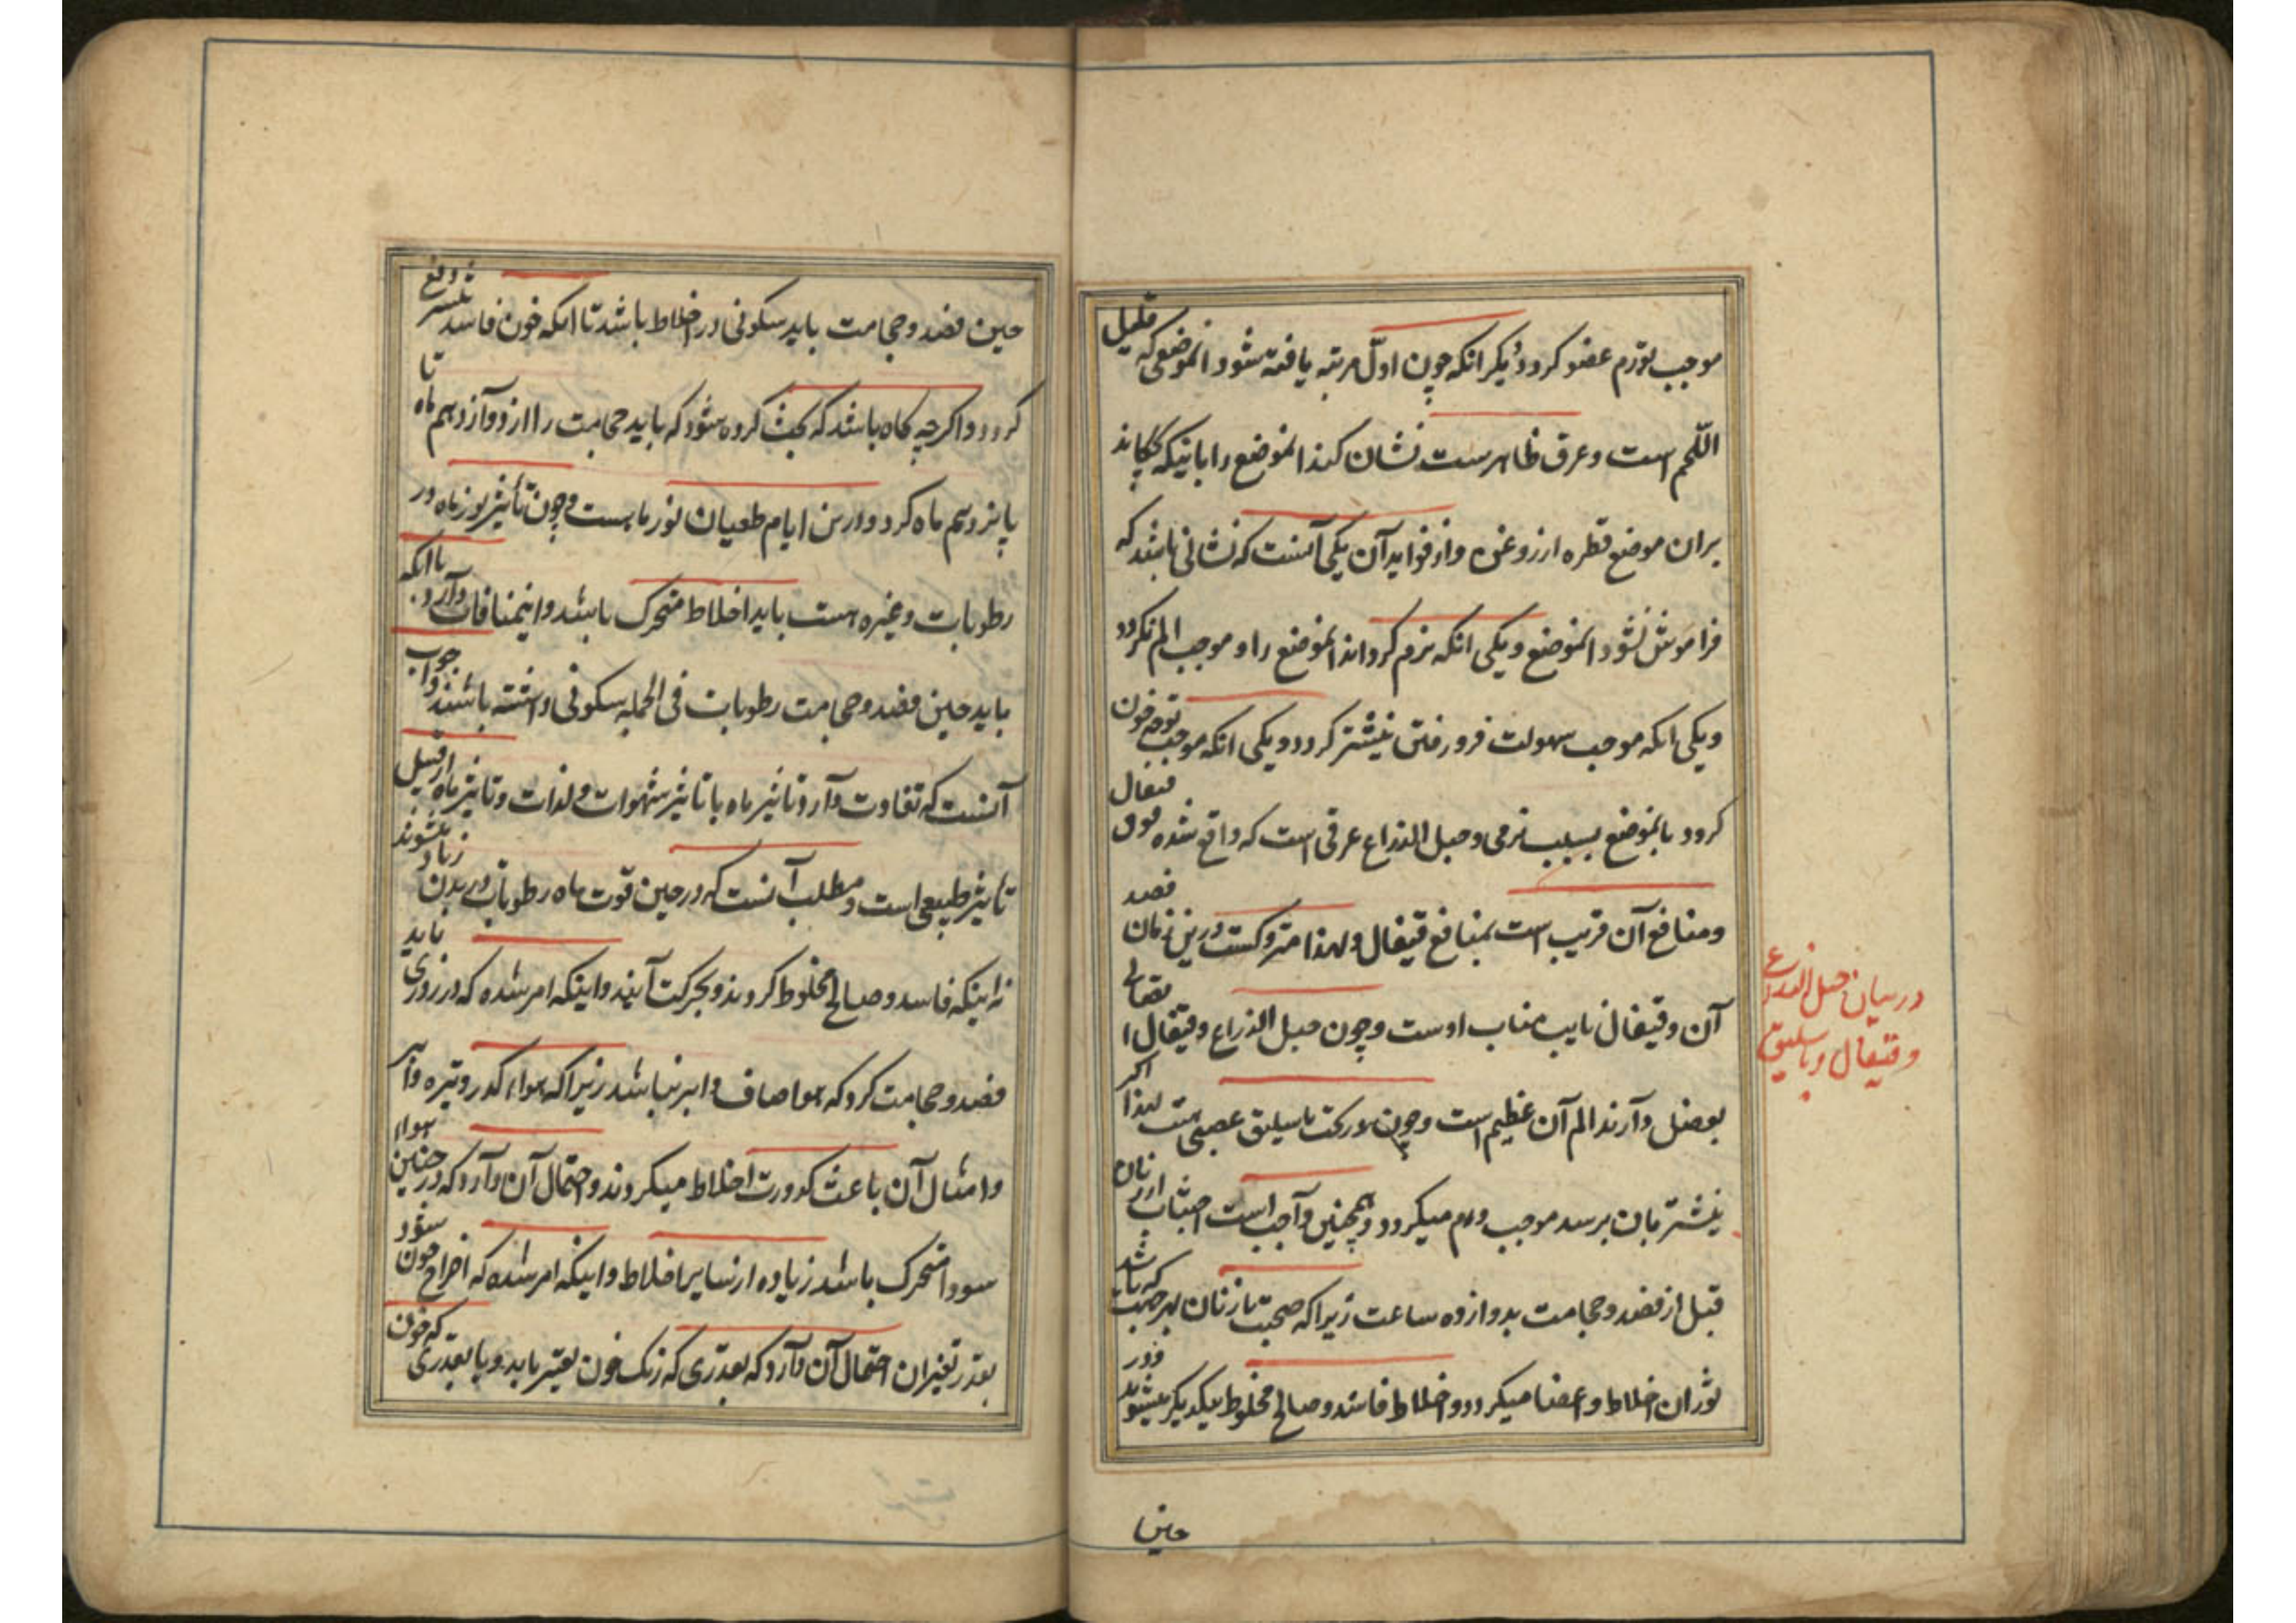 موجب تورم عضو کردد دیگر انکه چون اول مرتبه یافته شود انموضعی که قلیل
اللحم است و عرق ظاهرست نشان کند انموضع را باینکه بچکاند
بران موضع قطره از روغن و از فواید آن یکی آنست که نشانی باشد که
فراموش نشود انموضع و یکی انکه نرم کرداند انموضع را و موجب الم نکردد
و یکی انکه موجب سهولت فرو رفتن نیشتر کردد و یکی انکه موجب توجه خون
کردد بانموضع بسبب نرمی و حبل الذراع عرقی است که واقع شده فوق قیفال
و منافع آن قریب است بمنافع قیفال و لهذا متروکست درین زمان فصد
آن و قیفال نایب مناب اوست و چون حبل الذراع و قیفال
بوصل دارند الم آن عظیم است و چون در تحت باسلیق عصبی هست لهذا اکر
نیشتر بان برسد موجب ورم میکردد و همچنین واجب است اجتناب از زنان
قبل از فصد و حجامت بدوازده ساعت زیرا که صحبت با زنان بهر جهت که باشد
ثوران اخلاط و اعضا میکردد و اخلاط فاسد و صالح مخلوط بیکدیگر میشوند و در
حین
درمیان حبل الذراع
و قیفال و باسلیق
حین فصد و حجامت باید سکونی در اخلاط باشد تا انکه خون فاسد بیشتر دفع
کردد و اکرچه کاه باشد که بحث کرده شود که باید حجامت را از دوازدهم ماه تا
پانزدهم ماه کرد و درین ایام طغیان نور ماهست و چون تأثیر نور ماه در
رطوبات و غیره هست باید اخلاط متحرک باشد و اینمنافات دارد با انکه
باید حین فصد و حجامت رطوبات فی الجمله سکونی داشته باشند و جواب
آنست که تفاوت دارد تاثیر ماه با تاثیر شهوات و لذات و تاثیر ماه از قبیل
تاثیر طبیعی است و مطلب آنست که در حین قوت ماه رطوبات در بدن زیاد میشوند
نه اینکه فاسد و صالح مخلوط کردند و بحرکت آیند و اینکه امر شده که در روزی باید
فصد و حجامت کرد که هوا صاف و ابر نباشد زیرا که هواء کدر و تیره و ابر
و امثال آن باعث کدورت اخلاط میکردند و احتمال آن دارد که در چنین هواء
سودا متحرک باشد زیاده از سایر اخلاط و اینکه امر شده که اخراج خون شود
بقدر تغیر ان احتمال آن دارد که بقدری که رنک خون تغیر یابد و یا بقدری که خون